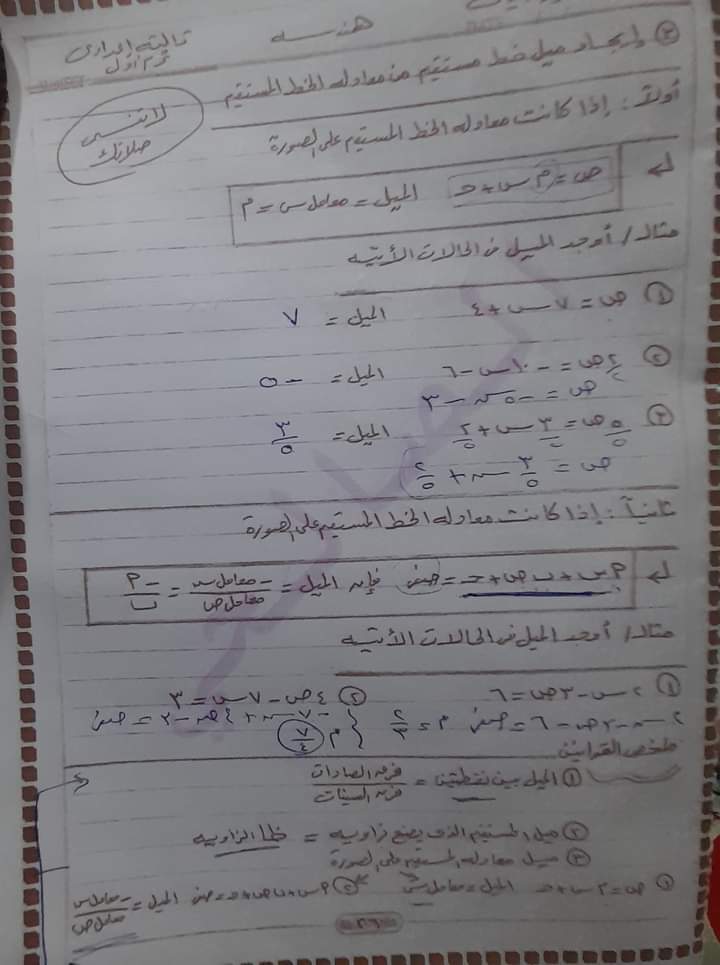 هندسه
ثالثة إعدادى
ترم أول
③ إيجاد ميل خط مستقيم من معادله الخط المستقيم
لا تنسى
صلاتك
أولاً: إذا كانت معادله الخط المستقيم على الصورة
ص = م س + حـ الميل = معامل س = م
مثال / أوجد الميل فى الحالات الأتيه
① ص = ٧ س + ٤ الميل = ٧
② ٢ص = -١٠س - ٦ الميل = -٥
ص = -٥س - ٣
③ ٥/٥ ص = ٣/٥ س + ٢/٥ الميل = ٣/٥
ص = ٣/٥ س + ٢/٥
ثانياً: إذا كانت معادله الخط المستقيم على الصورة
م س + ب ص + حـ = صفر فإن الميل = -معامل س/معامل ص = -م/ب
مثال / أوجد الميل فى الحالات الأتيه
① ٢س - ٣ص = ٦ ② ٤ص - ٧س = ٣
٢س - ٣ص - ٦ = صفر م = ٢/٣ -٧س + ٤ص - ٣ = صفر
م ٧/٤
ملخص القوانين
① الميل بين نقطتين = فرق الصادات/فرق السينات
② ميل المستقيم الذى يصنع زاويه = ظا الزاويه
③ ميل معادله المستقيم على الصورة
① ص = م س + حـ الميل = معامل س ② م س + ب ص + حـ = صفر الميل = -معامل س/معامل ص